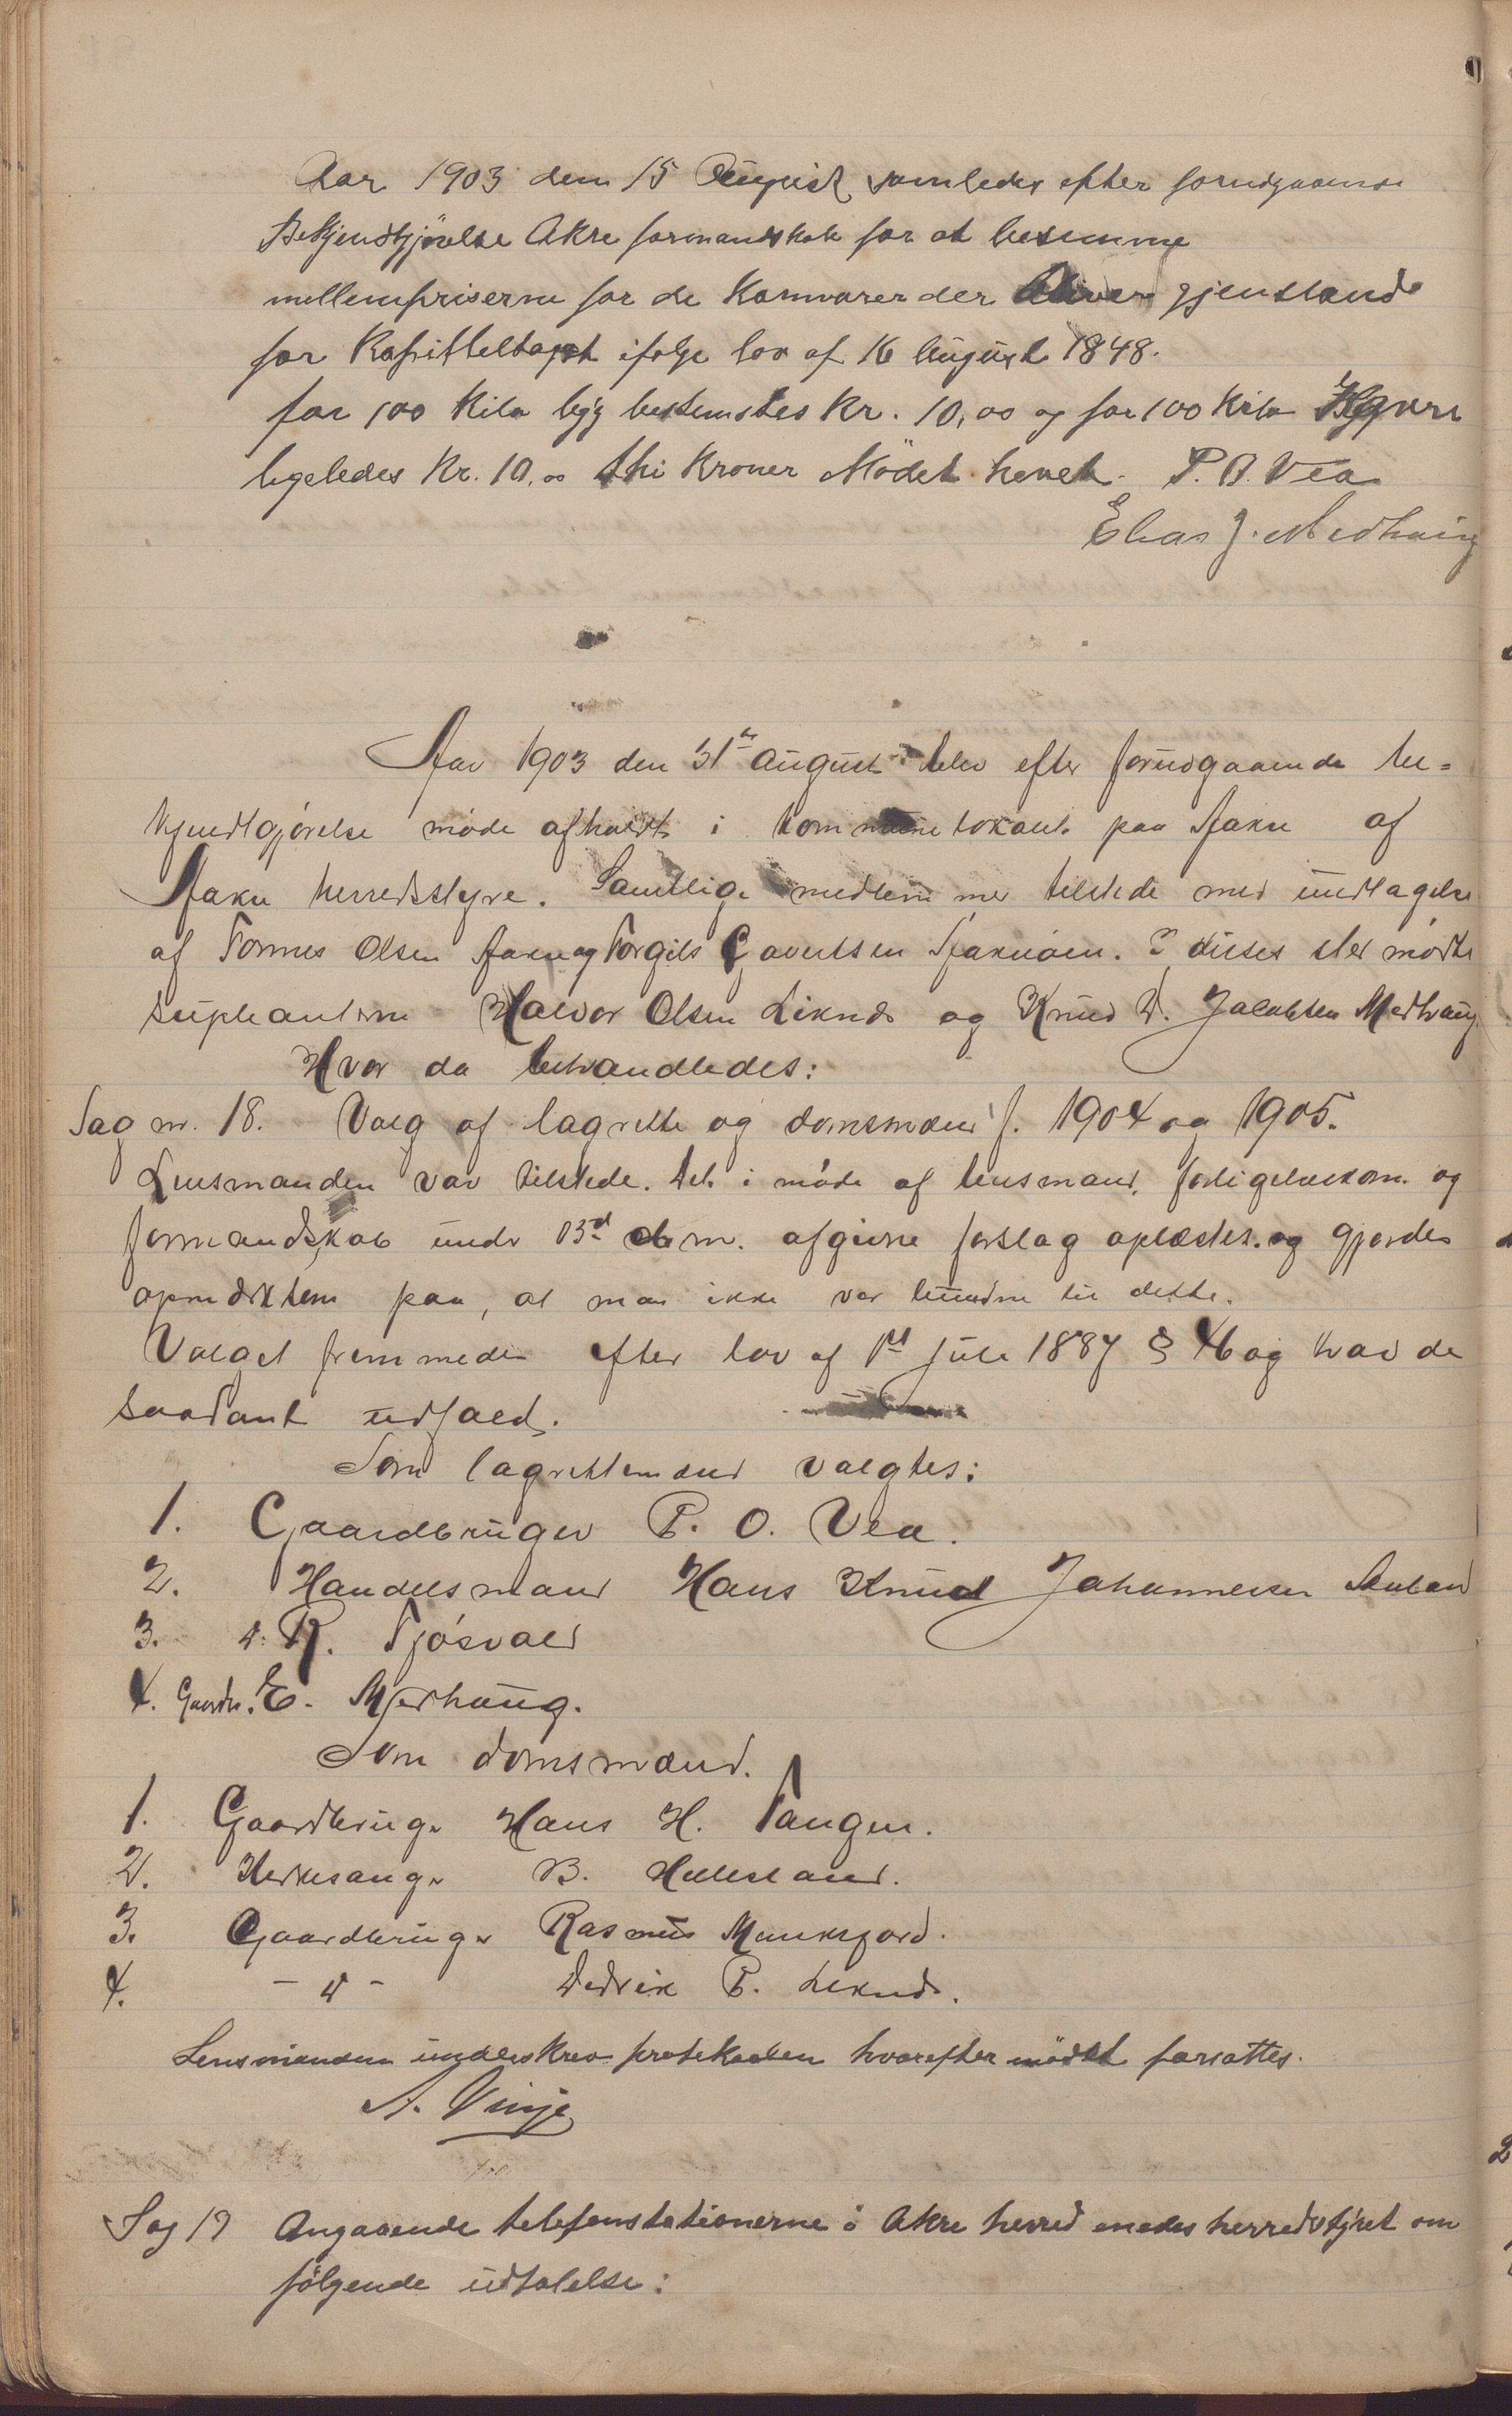 Aar 1903 den 15 August samledes efter forudgaaende
Bekjendtgjörelse Akre formandskab for at bestemme
mellempriserne for de Kornvarer der bliver gjenstand
for Kapitteltaxt ifølge lov af 16 August 1848.
for 100 Kilo byg bestemtes Kr. 10,00 og for 100 Kilo Havre
ligeledes Kr. 10,00 thi Kroner Mödet hevet. P. O. Vea
Elias J. Medhaug
Aar 1903 den 31te august blev efter forudgaaende be=
kjendtgjørelse møde afholdt i kommunelokalet paa Aakre af
Aakre herredsstyre. Samtlige medlemmer tilstede med undtagelse
af Tormes Olsen Aakre og Torgils Govertsen Aakreøen. I disses sted mødte
supleanterne Halvor Olsen Liknes og Knud D. Jakobsen Medhaug
Hvor da behandledes:
Sag nr. 18. Valg af lagrette og domsmænd f. 1904 og 1905.
Lensmanden var tilstede. Det i møde af lensmand, forligelseskom. og
formandskab under 13d d.m. afgivne forslag oplæstes og gjordes
opmærksom paa, at man ikke var bunden til dette.
Valget fremmedes efter lov af 1st Juli 1887 § 46 og havde
saadant udfald.
Som lagrettemænd valgtes:
1. Gaardbruger P. O. Vea.
2. Handelsmand Hans Knud Johannesen
3. d. R. Tjøsvold
4. Gaardbr. E. Medhaug.
Som domsmænd.
1. Gaardbruger Hans H. Tangen.
2. Kirkesanger B. Helleland.
3. Gaardbruger Rasmus Munkejord.
4. - d - Didrik P. Liknes.
Lensmanden underskrev protokollen hvorefter mödet forsattes.
A. Vinje
Sag 19 Angaaende telefonstationerne i Akre herred enedes herredstyret om
fölgende udtalelse: